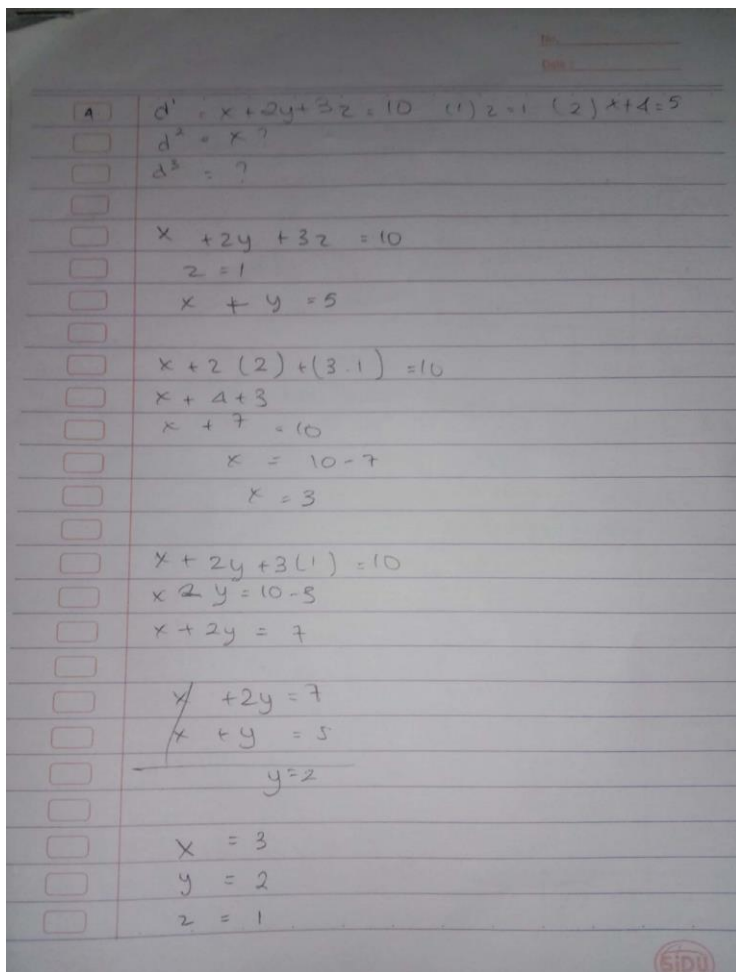 No.
Date :
4 d¹ = x + 2y + 3z = 10 (1) z = 1 (2) x + 4 = 5
d² = x ?
d³ = ?
x + 2y + 3z = 10
z = 1
x + y = 5
x + 2 (2) + (3 . 1) = 10
x + 4 + 3
x + 7 = 10
x = 10 - 7
x = 3
x + 2y + 3(1) = 10
x 2 y = 10 - 3
x + 2y = 7
x + 2y = 7
x + y = 5
y = 2
x = 3
y = 2
z = 1
SiDU